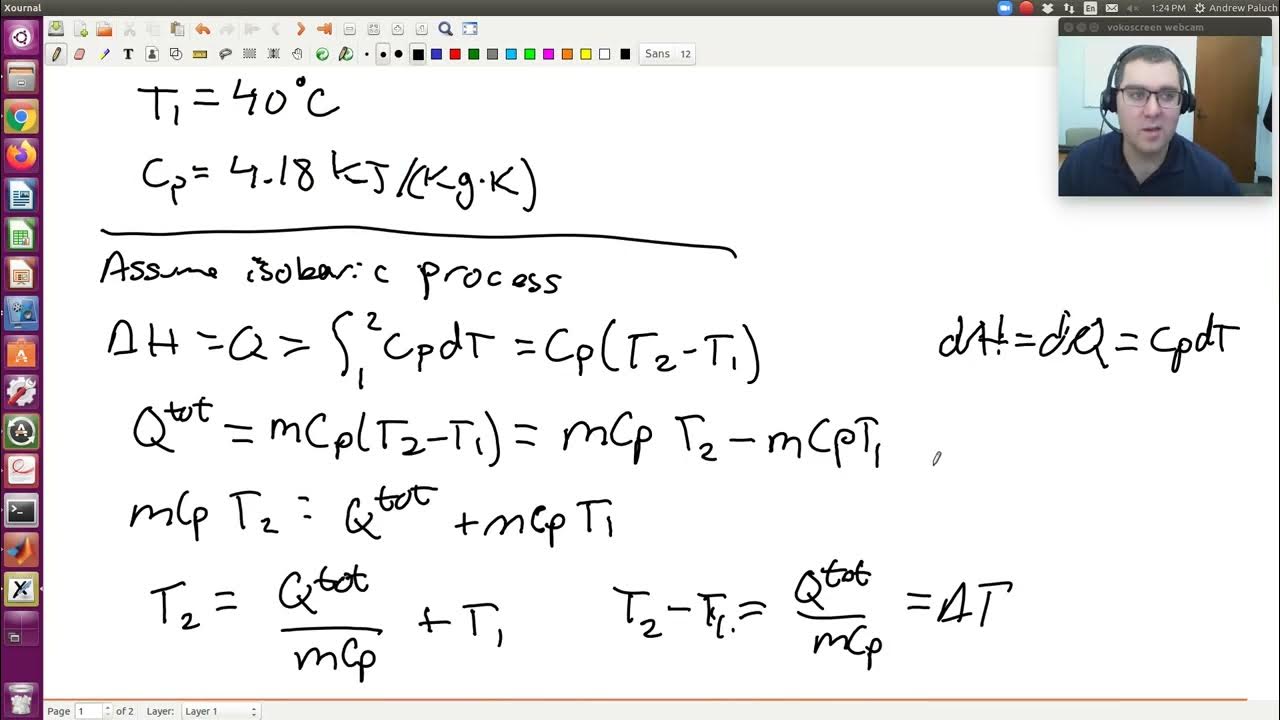 Xournal
En
1:24 PM
Andrew Paluch
vokoscreen webcam
Sans 12
T₁ = 40°C
Cp = 4.18 kJ/(Kg·K)
Assume isobaric process
ΔH = Q = ∫₁² CpdT = Cp(T₂-T₁)
dH = dQ = CpdT
Q^tot = mCp(T₂-T₁) = mCp T₂ - mCpT₁
mCp T₂ = Q^tot + mCp T₁
T₂ = Q^tot/mCp + T₁
T₂ - T₁ = Q^tot/mCp = ΔT
Page 1 of 2 Layer: Layer 1